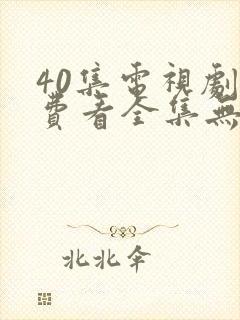 40集電視劇
費看全集無
北北伞